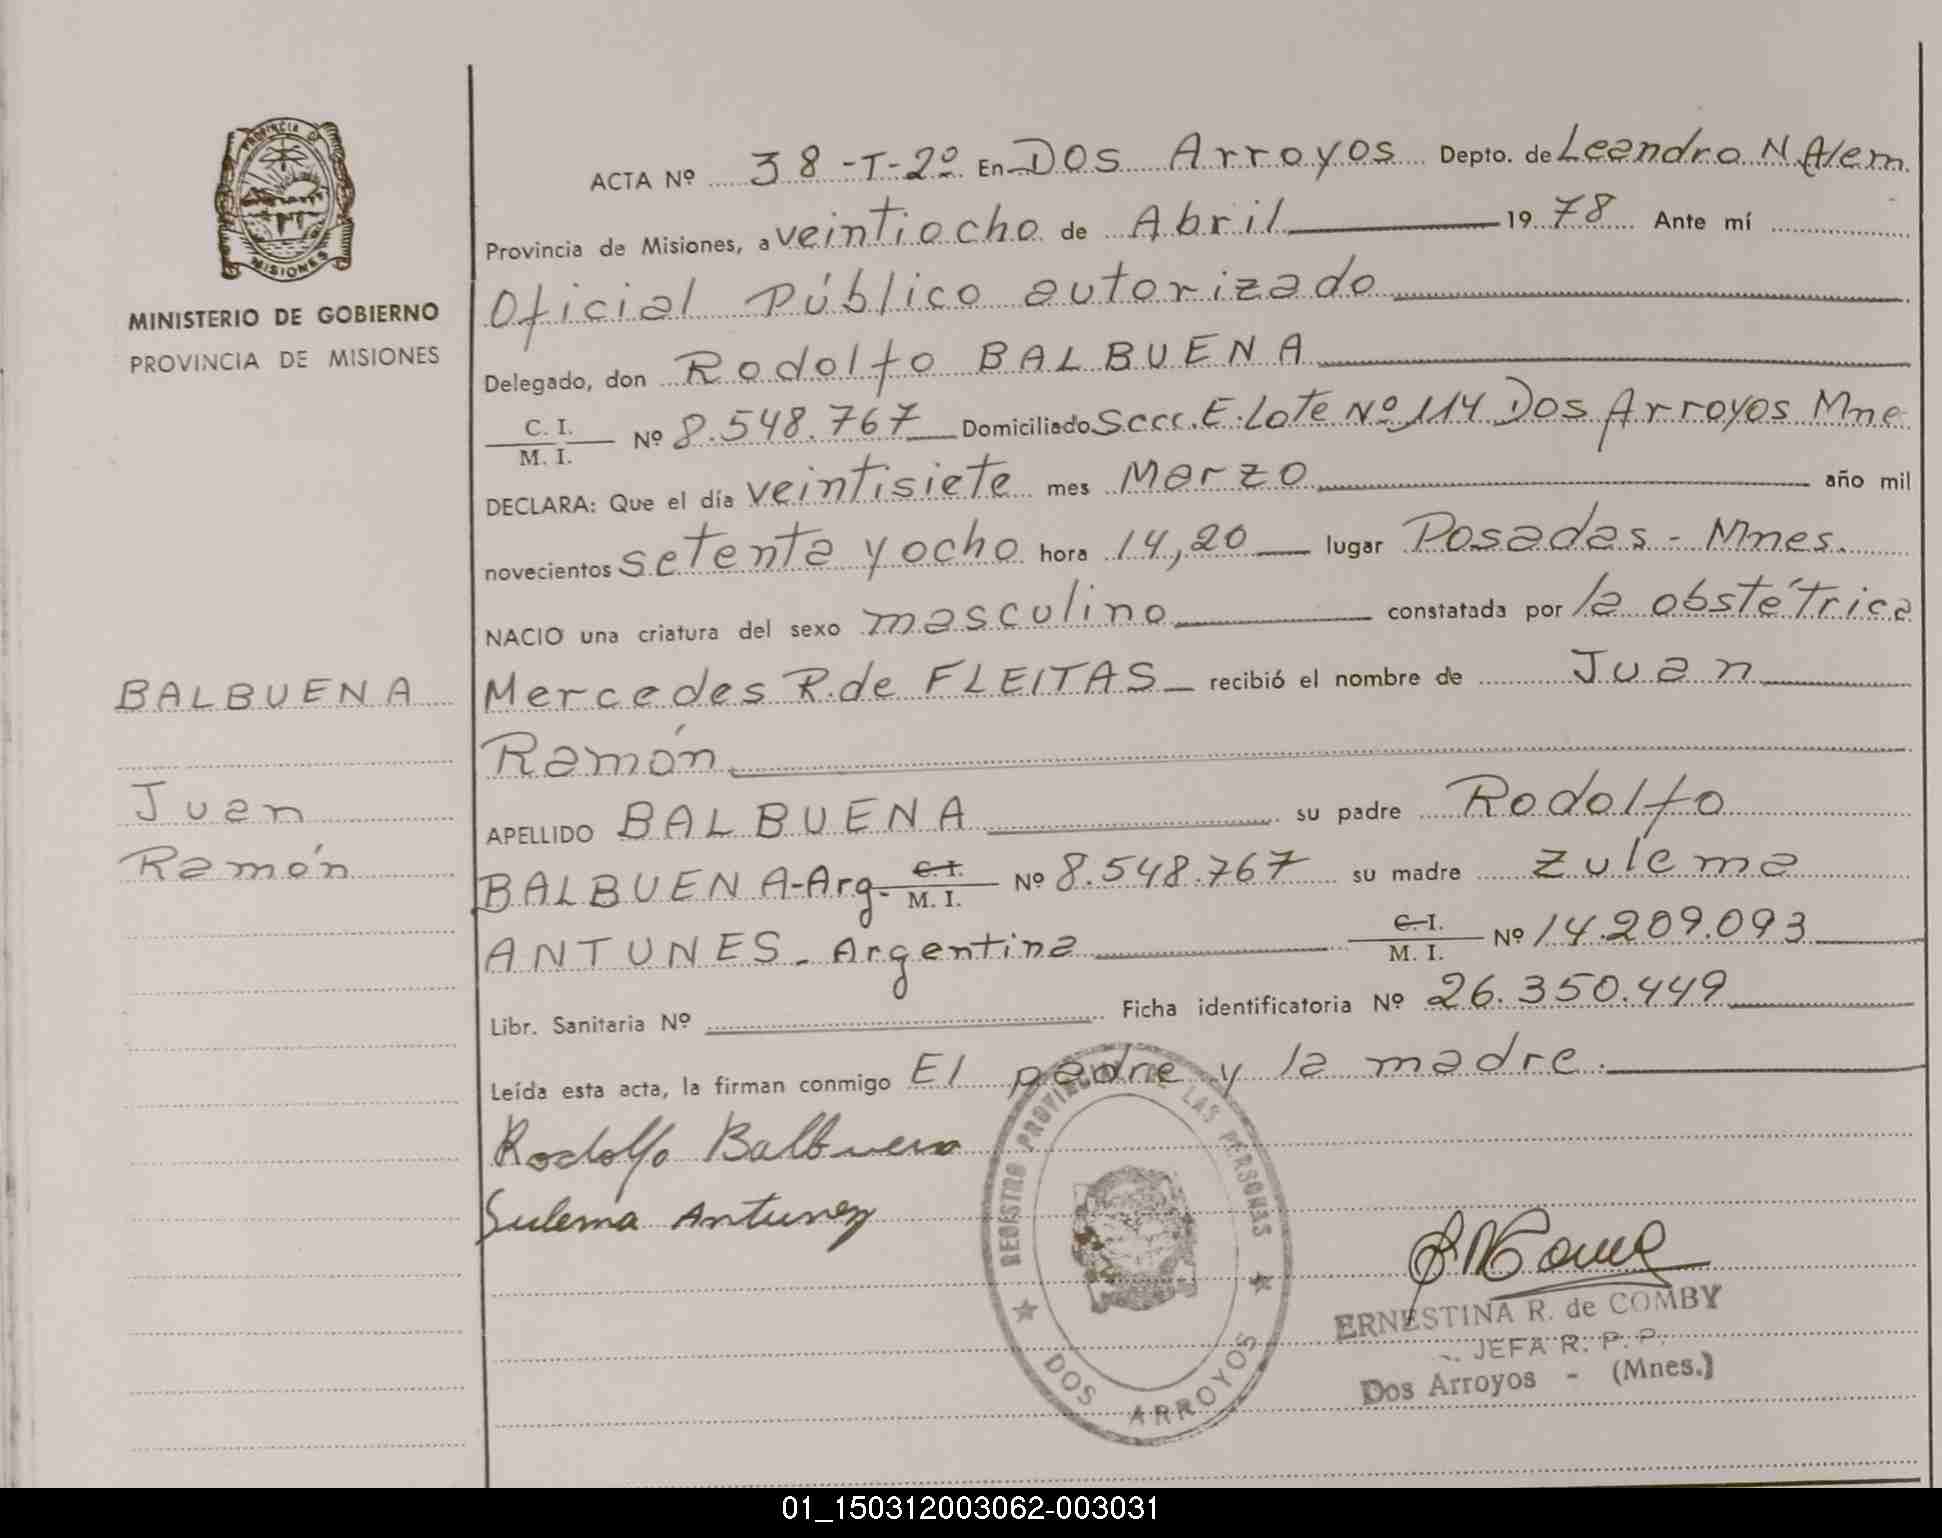 PROVINCIA D
MISIONES
MINISTERIO DE GOBIERNO
PROVINCIA DE MISIONES
BALBUENA
Juan
Ramón
ACTA Nº 38-T-2º En DOS Arroyos Depto. de Leandro N. Alem
Provincia de Misiones, a veintiocho de Abril 1978 Ante mí
Oficial Público autorizado
Delegado, don Rodolfo BALBUENA
C. I.
M. I. Nº 8.548.767 Domiciliado Secc. E. Lote Nº 114 Dos Arroyos Mne
DECLARA: Que el día veintisiete mes Marzo año mil
novecientos setenta y ocho hora 14,20 lugar Posadas - Mnes.
NACIO una criatura del sexo masculino constatada por la obstétrica
Mercedes R. de FLEITAS recibió el nombre de Juan
Ramón
APELLIDO BALBUENA su padre Rodolfo
BALBUENA-Arg. C. I. M. I. Nº 8.548.767 su madre Zulema
ANTUNES - Argentina C. I. M. I. Nº 14.209.093
Libr. Sanitaria Nº Ficha identificatoria Nº 26.350.449
Leída esta acta, la firman conmigo El padre y la madre.
Rodolfo Balbuena
Sulema Antunez
REGISTRO PROVINCIAL DE LAS PERSONAS
DOS ARROYOS
ERNESTINA R. de COMBY
JEFA R. P. P.
Dos Arroyos - (Mnes.)
01_150312003062-003031